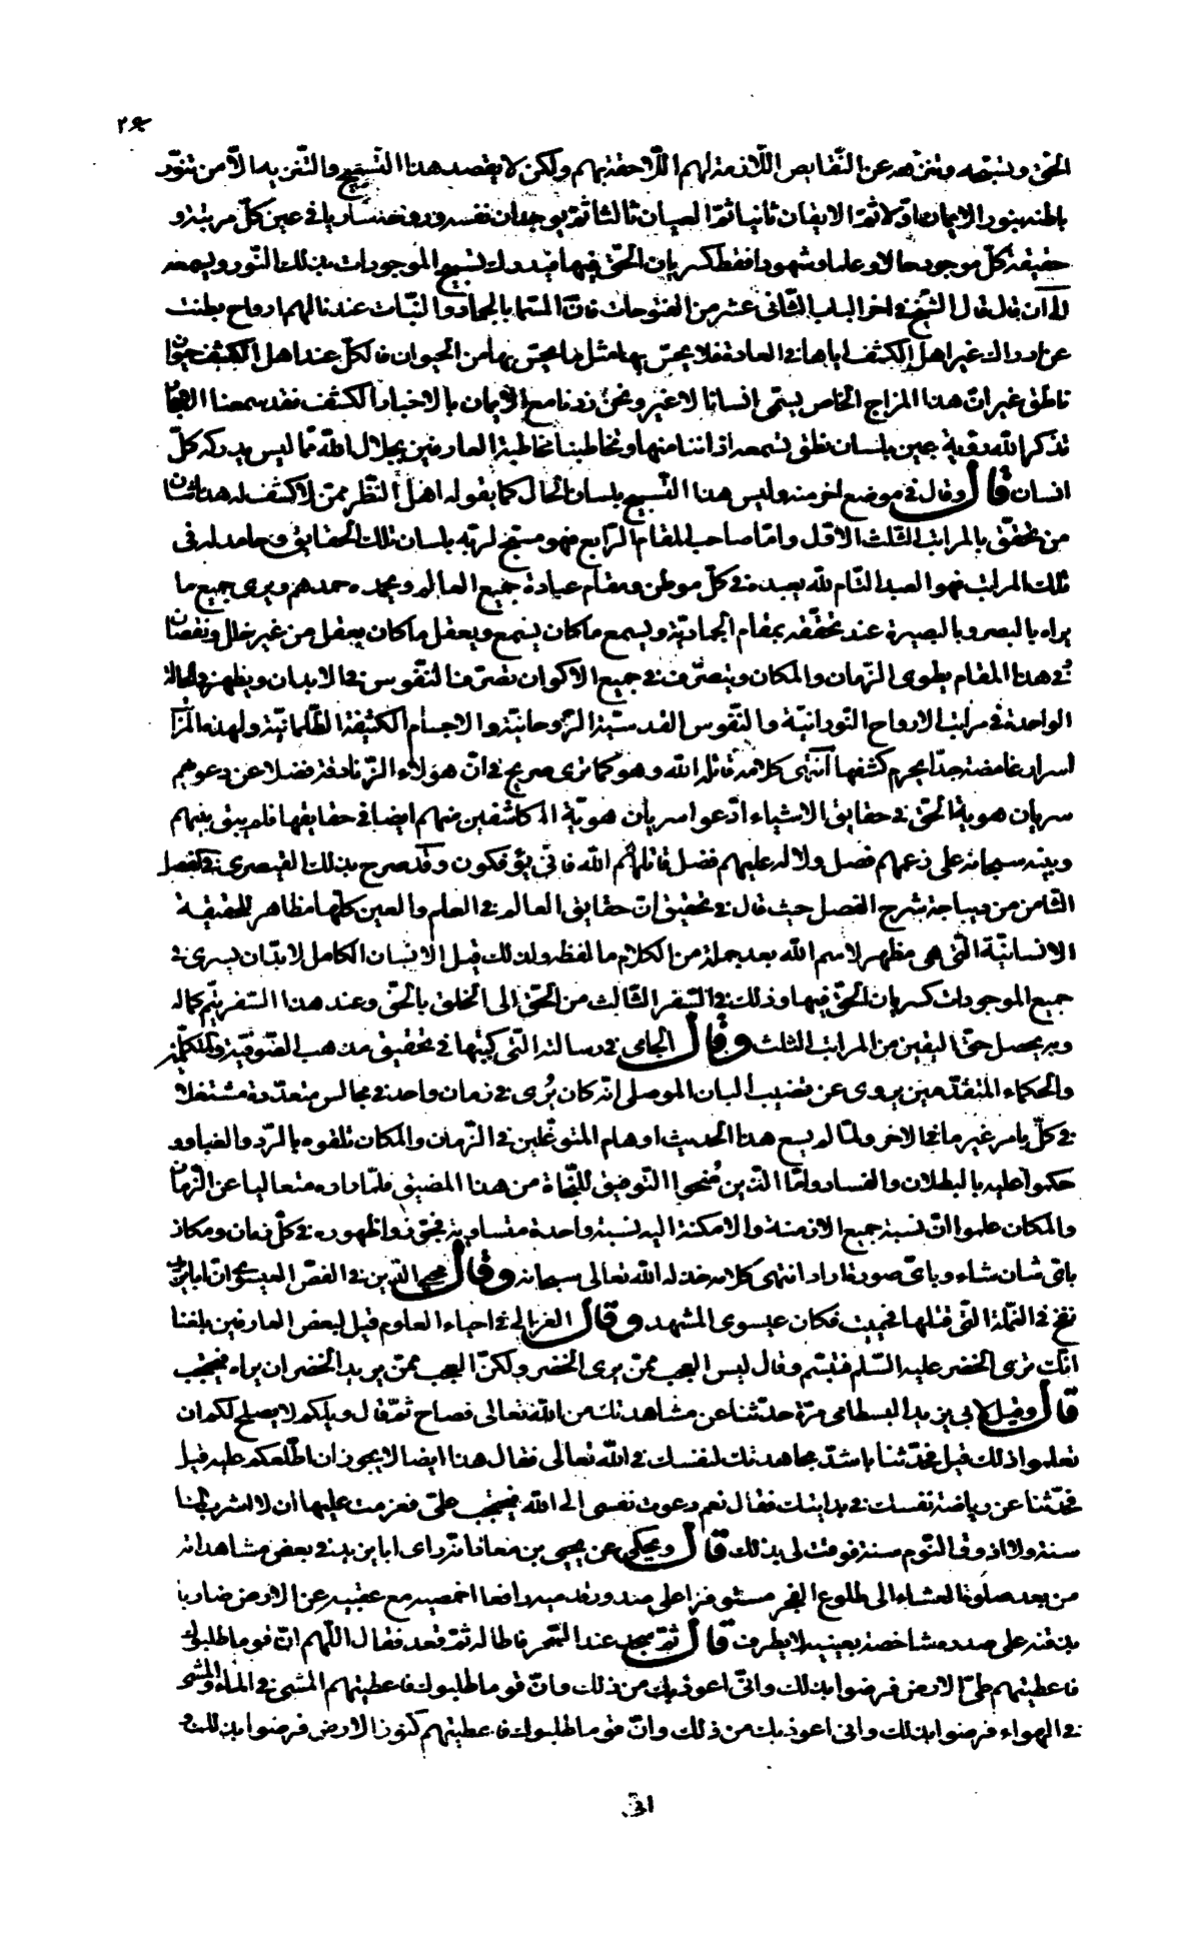 الحق ويسبّحه وينزّهه عن النّقايص اللّازمة لهم اللّاحقة بهم ولكن لا يقصد هذا التّسبيح والتّنزيه الّا من تنوّر
باطنه بنور الايمان اوّلا ثمّ الايقان ثانيا ثمّ العيان ثالثا ثمّ بوجدان نفسه وروحه ساريا في عين كلّ مرتبة و
حقيقة كلّ موجود حالا وعلما وشهودا فقط كسريان الحقّ فيها فيدرك تسبيح الموجودات بذلك النّور ويسمعه
الى ان قال قال الشّيخ في اخر الباب الثّاني عشر من الفتوحات فانّ المسمّى بالجماد والنّبات عندنا لهم ارواح بطنت
عن ادراك غير اهل الكشف اياها في العادة فلا يحسّ بها مثل ما يحسّ بها من الحيوان فالكلّ عند اهل الكشف حيوان
ناطق غير انّ هذا المزاج الخاص يسمّى انسانا لا غير ونحن زدنا مع الايمان بالاخبار الكشف فقد سمعنا الاحجار
تذكر الله رؤية عين بلسان نطق تسمعه اذاننا منها وتخاطبنا مخاطبة العارفين بجلال الله ممّا ليس يدركه كلّ
انسان قال وقال في موضع اخر منه وليس هذا التّسبيح بلسان الحال كما يقوله اهل النّظر ممّن لا كشف له هذا شان
من تحقّق بالمراتب الثلث الاوّل وامّا صاحب المقام الرّابع فهو مسبّح لربّه بلسان تلك الحقايق وحامد له في
تلك المراتب فهو العبد التّام لله يعبده في كلّ موطن ومقام عبادة جميع العالم ويحمده حمدهم ويرى جميع ما
يراه بالبصر وبالبصيرة عند تحقّقه بمقام الجماديّة ويسمع ما كان يسمع ويعقل ما كان يعقل من غير خلل ونقصان
في هذا المقام يطوى الزّمان والمكان ويتصرّف في جميع الاكوان تصرّف النّفوس في الابدان ويظهر في الحالة
الواحدة في مراتب الارواح النّورانيّة والنّفوس القدسيّة الرّوحانيّة والاجسام الكثيفة الظّلمانيّة ولهذه المراتب
اسرار غامضة جدّا يحرم كشفها انتهى كلامه قاتله الله وهو كما ترى صريح في انّ هؤلاء الزّنادقة فضلا عن دعويهم
سريان هوية الحقّ في حقايق الاشياء ادّعوا سريان هويّة الكاشفين منهم ايضا في حقايقها فلم يبق بينهم
وبينه سبحانه على زعمهم فصل ولا له عليهم فضل قاتلهم الله فانّى يؤفكون وقد صرح بذلك القيصري في الفصل
الثّامن من ديباجة شرح الفصل حيث قال في تحقيق انّ حقايق العالم في العلم والعين كلّها مظاهر للحقيقة
الانسانيّة الّتي هي مظهر لاسم الله بعد جملة من الكلام ما لفظه ولذلك قيل الانسان الكامل لا بدّ ان يسرى في
جميع الموجودات كسريان الحقّ فيها وذلك في السّفر الثّالث من الحقّ الى الخلق بالحقّ وعند هذا السّفر يتمّ كماله
وبه يحصل حقّ اليقين من المراتب الثلث وقال الجامي في رسالته الّتي كتبها في تحقيق مذهب الصّوفيّة والمتكلّمين
والحكماء المتقدّمين يروى عن قضيب البان الموصلي انّه كان يُرى في زمان واحد في مجالس متعدّدة مشتغلا
في كلّ بامر غير ما في الاخر ولمّا لم يسع هذا الحديث اوهام المتوغّلين في الزّمان والمكان تلقوه بالرّد والعناد و
حكموا عليه بالبطلان والفساد وامّا الّذين مُنحوا التّوفيق للنّجاة من هذا المضيق فلمّا راوه متعاليا عن الزّمان
والمكان علموا انّ نسبة جميع الازمنة والامكنة اليه نسبة واحدة متساوية فجوّزوا ظهوره في كلّ زمان ومكان
باىّ شان شاء وباىّ صورة اراد انتهى كلامه خذله الله تعالى سبحانه وقال محيي الدّين في الفصّ العيسوي انّ ابا يزيد
نفخ في النّملة الّتي قتلها فحييت فكان عيسوى المشهد وقال الغزالي في احياء العلوم قيل لبعض العارفين بلغنا
انّك ترى الخضر عليه السّلم فتبسّم وقال ليس العجب ممّن يرى الخضر ولكنّ العجب ممّن يريد الخضر ان يراه فيحتجب
قال وقيل لابي يزيد البسطامي مرّة حدّثنا عن مشاهدتك من الله تعالى فصاح ثمّ قال ويلكم لا يصلح لكم ان
تعلموا ذلك قيل فحدّثنا باشدّ مجاهدتك لنفسك في الله تعالى فقال هذا ايضا لا يجوز ان اطّلعكم عليه قيل
فحدّثنا عن رياضة نفسك في بدايتك فقال نعم دعوت نفسى الى الله فجمحت علىّ فعزمت عليها ان لا اشرب الماء
سنة ولا اذوق النّوم سنة فوفت لى بذلك قال ويحكى عن يحيى بن معاذ انّه راى ابا يزيد في بعض مشاهداته
من بعد صلوة العشاء الى طلوع الفجر مستوفزا على صدور قدميه رافعا اخمصيه مع عقبيه عن الارض ضاربا
بذقنه على صدره شاخصا بعينيه لا يطرف قال ثمّ سجد عند السّحر فاطاله ثمّ قعد فقال اللّهم انّ قوما طلبوك
فاعطيتهم طىّ الارض فرضوا بذلك وانّى اعوذ بك من ذلك وانّ قوما طلبوك فاعطيتهم المشى في الماء والمشى
في الهواء فرضوا بذلك وانى اعوذ بك من ذلك وانّ قوما طلبوك فاعطيتهم كنوز الارض فرضوا بذلك و
انّى